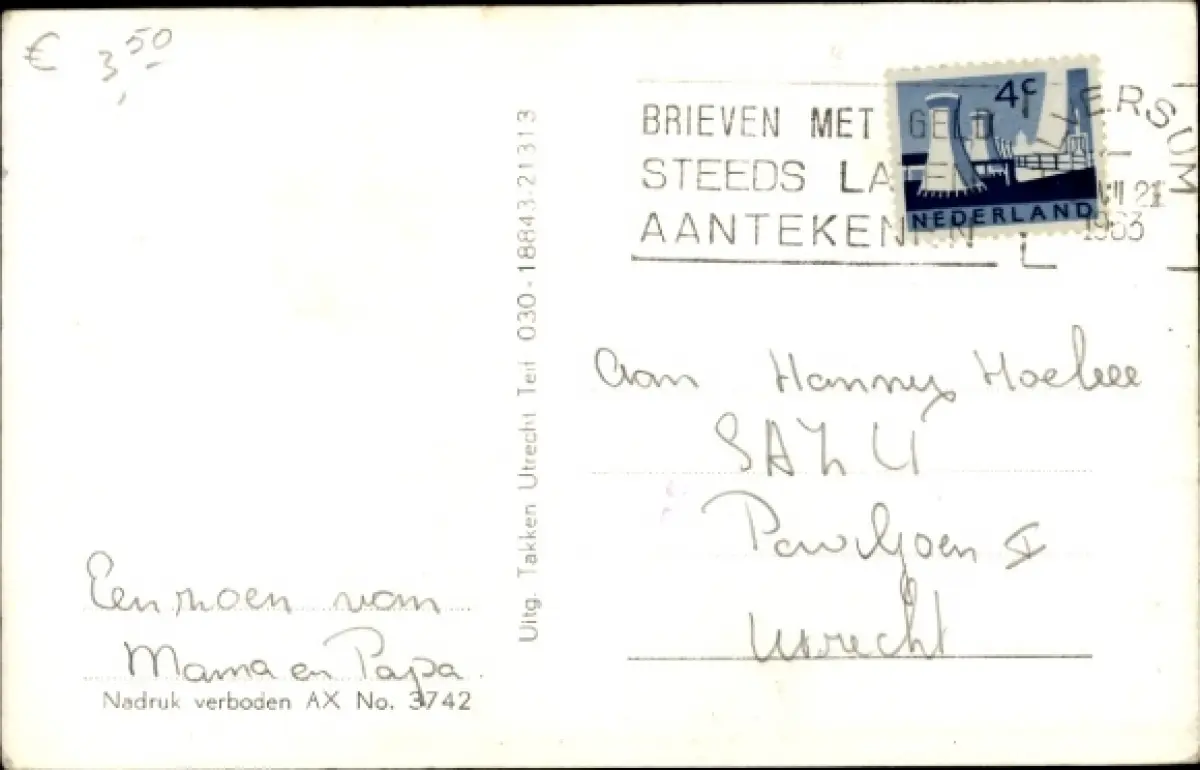 € 3,50
BRIEVEN MET GELD
STEEDS LATEN
AANTEKENEN
VERSUM
VII 21
1963
4c
NEDERLAND
Uitg. Takken Utrecht Telf 030-18843-21313
aan Hanny Hoebee
SAZU
Paviljoen V
Utrecht
Een zoen van
Mama en Papa
Nadruk verboden AX No. 3742